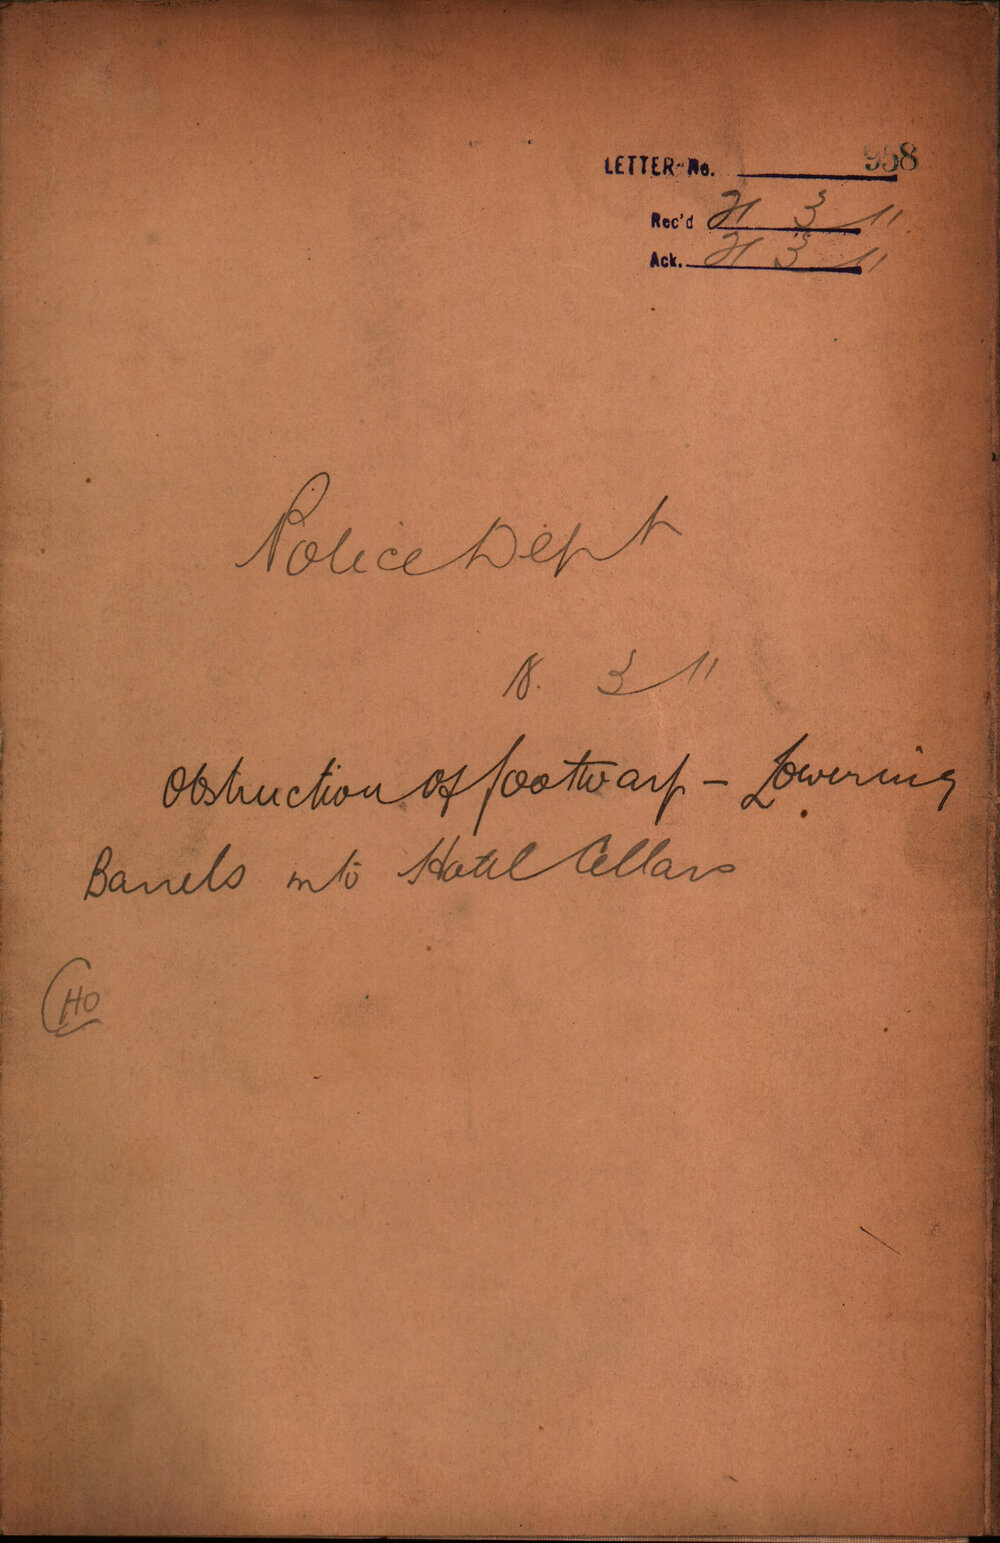 LETTER No. 958
Rec'd 21 3 11
Ack. 21 3 11
Police Dept
18. 3 11
Obstruction of footway – Lowering
Barrels into Hotel Cellars
HO